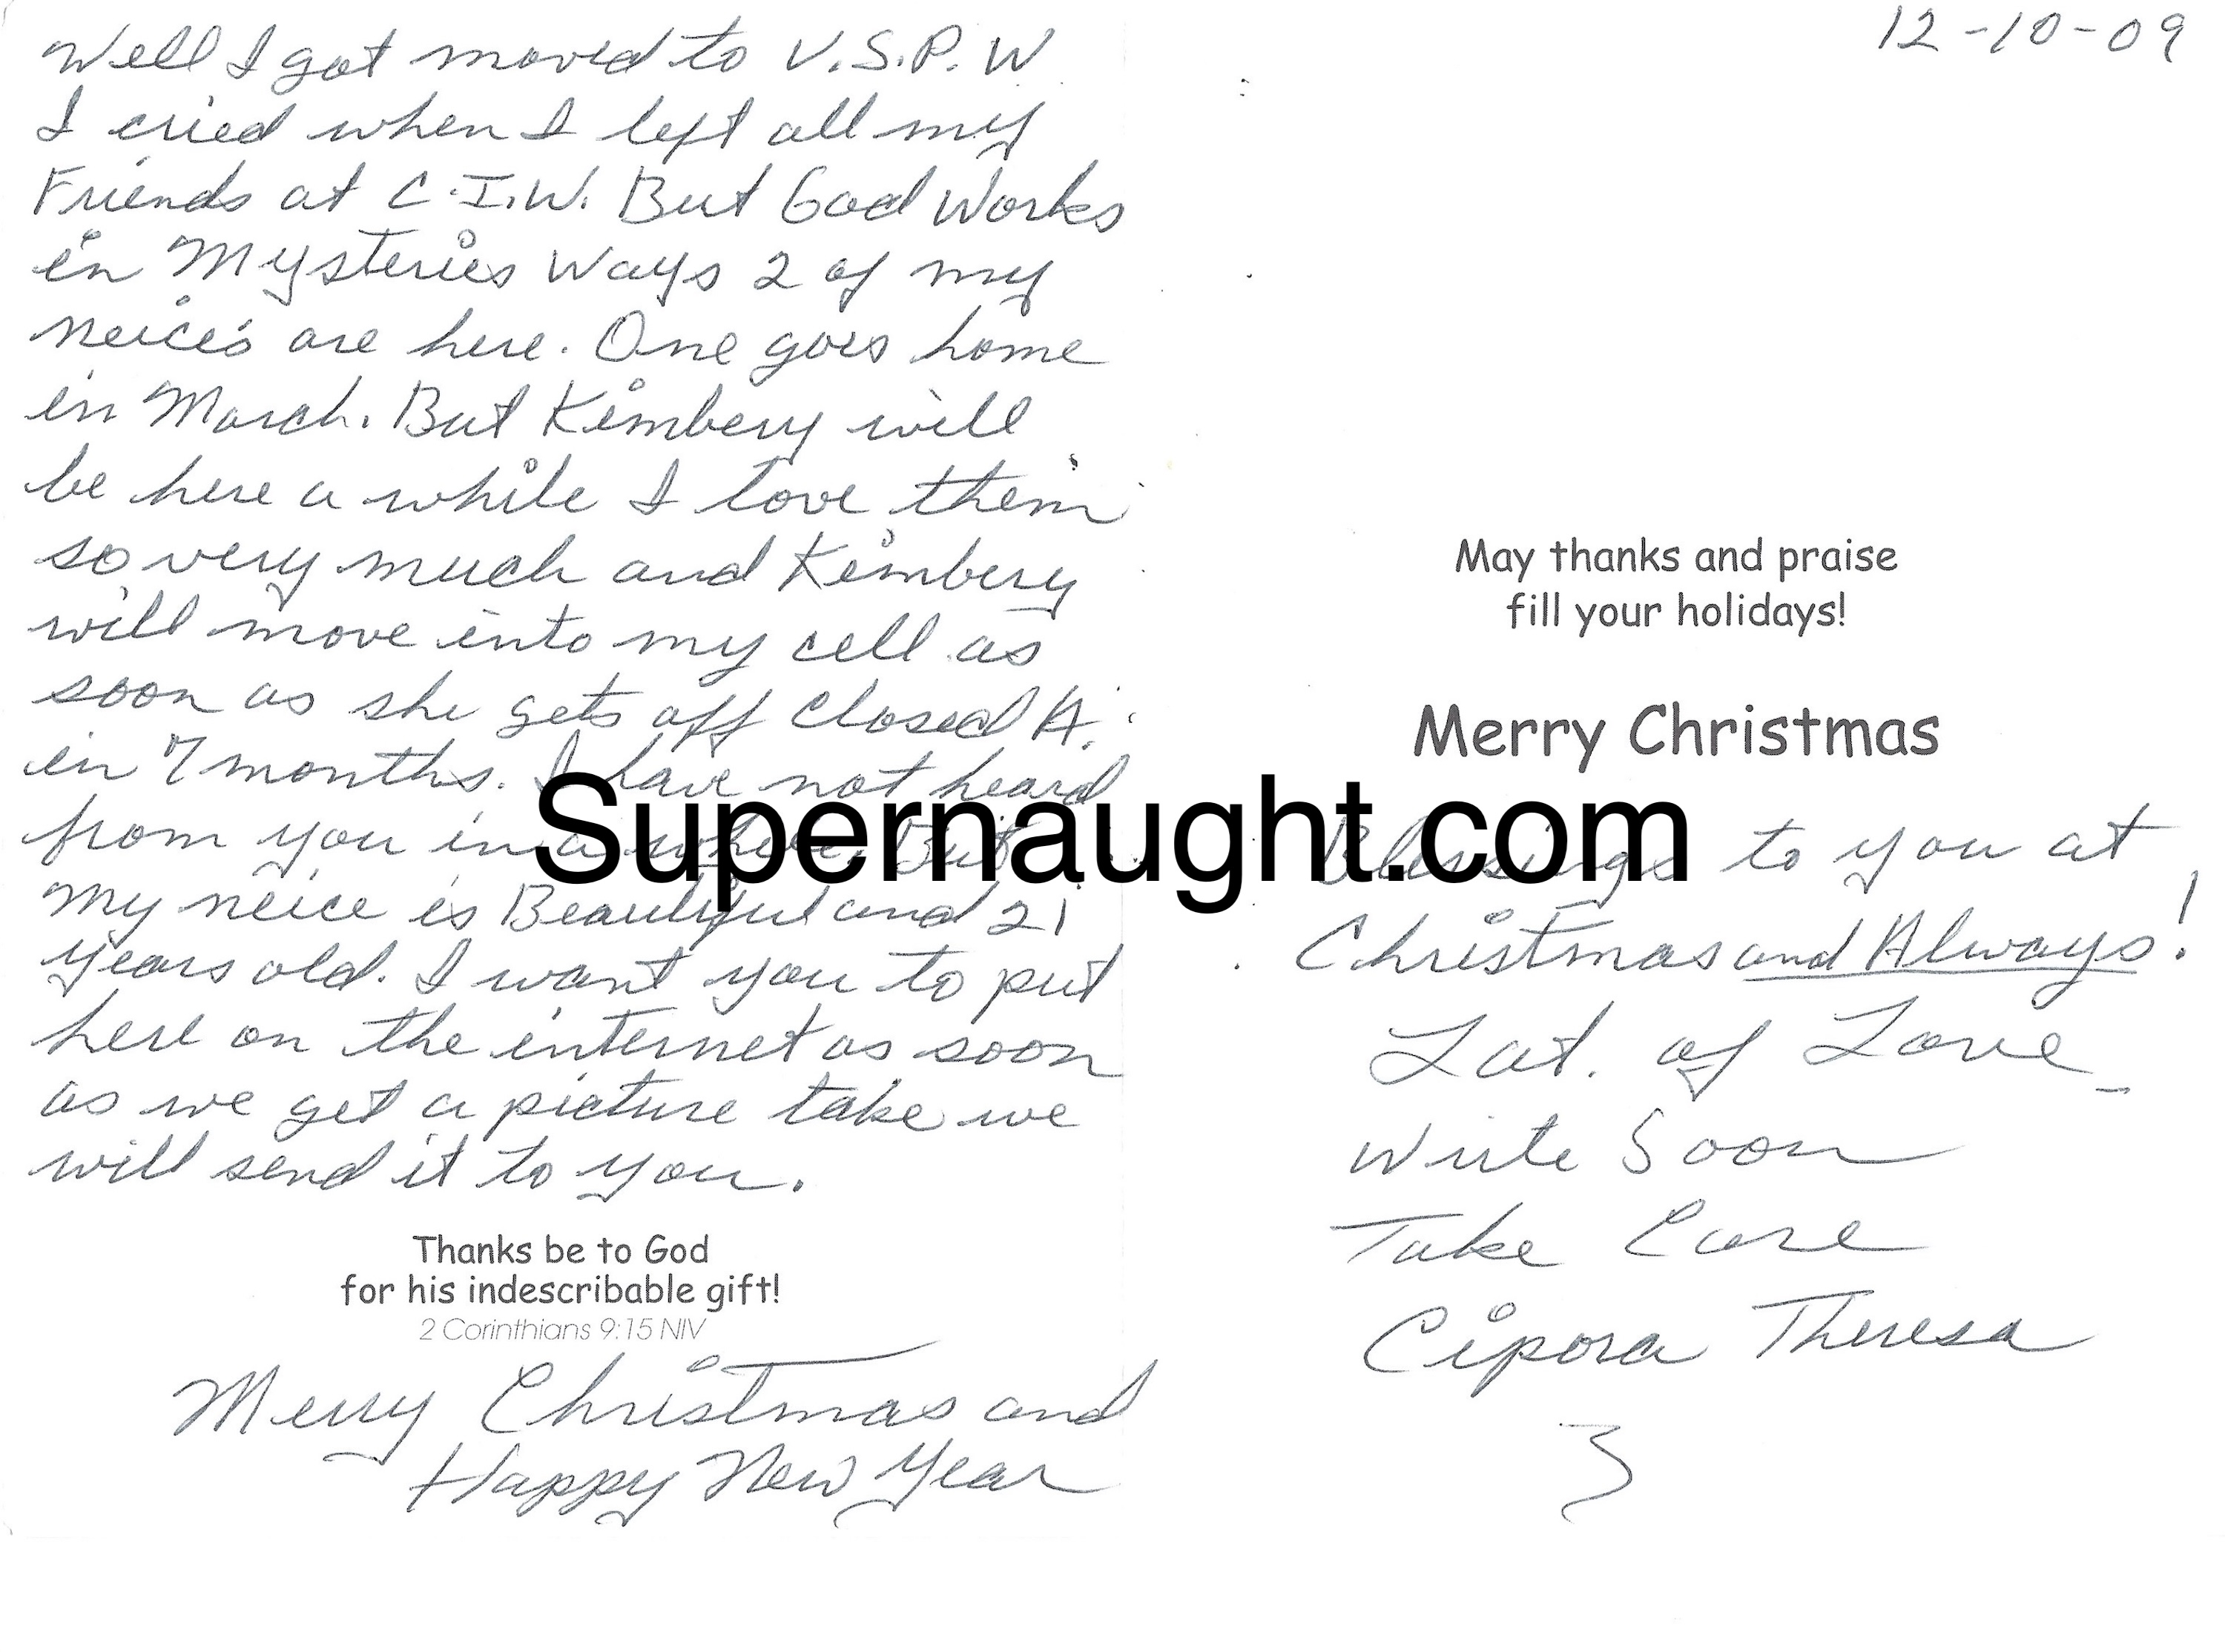 Well I got moved to V.S.P.W
I cried when I left all my
Friends at C.I.W. But God Works
in Mysteries Ways 2 of my
neice's are here. One goes home
in March. But Kimbery will
be here a while I love them
so very much and Kimbery
will move into my cell as
soon as she gets off Closed A.
in 7 months. I have not heard
from you in a while. But
my neice is Beautiful and 21
years old. I want you to put
here on the internet as soon
as we get a picture take we
will send it to you.
Thanks be to God
for his indescribable gift!
2 Corinthians 9:15 NIV
Merry Christmas and
Happy New Year
12-10-09
May thanks and praise
fill your holidays!
Merry Christmas
Blessings to you at
Christmas and Always!
Lot. of Love
Write Soon
Take Care
Cipora Theresa
Supernaught.com